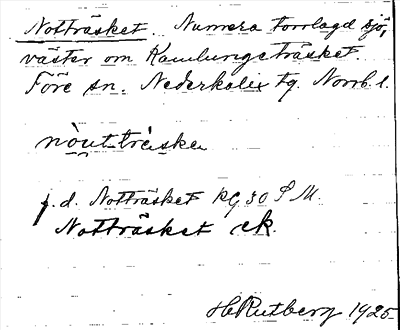 Notträsket. Numera torrlagd sjö,
väster om Kamlungeträsket.
Före sn. Nederkalix tg. Norrb. l.
nòuttrèsken
j. d. Notträsket RG 30 S M.
Notträsket ek.
H Rutberg 1925